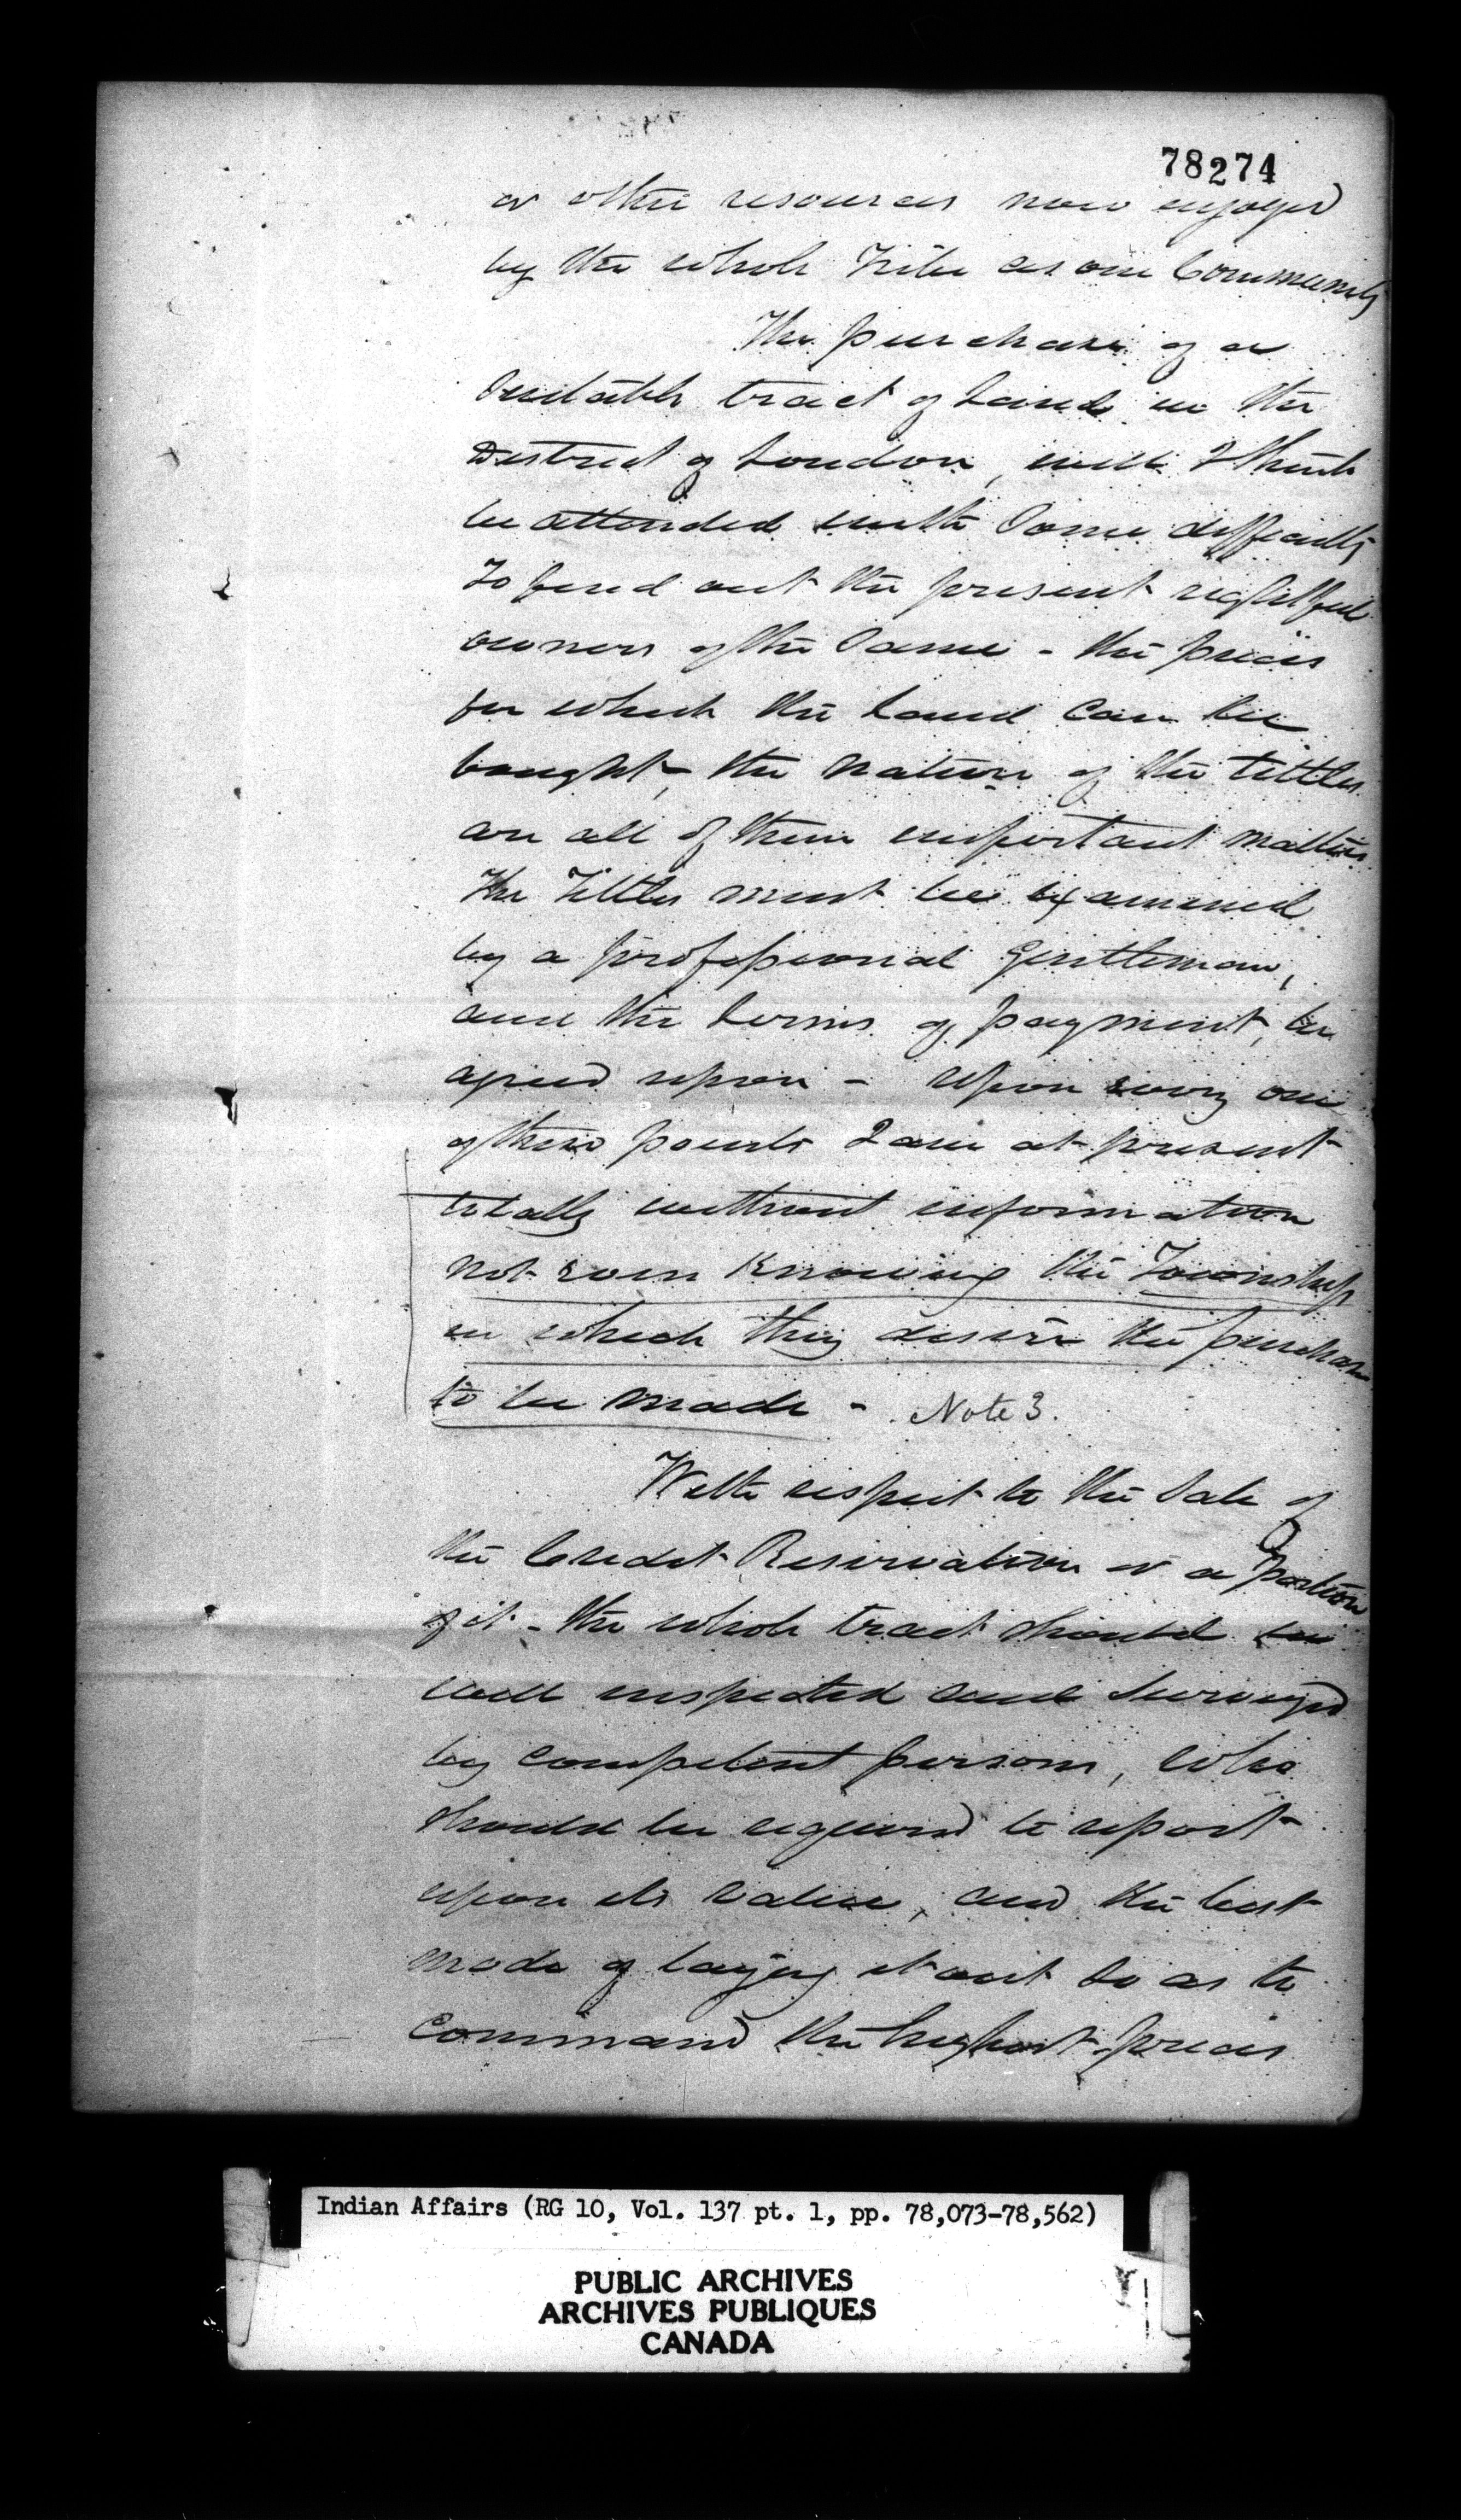 78274
or other resources now enjoyed
by the whole Tribe as one Community
The purchase of a
Suitable tract of Land in the
District of London, will I think
be attended with Some difficulty
To find out the present rightful
owners of the Same - the prices
for which the Land Can be
bought, the nature of the tittles
are all of them important matters
The Tittles must be examined
by a professional Gentleman,
and the terms of payment, be
agreed upon - Upon every one
of these points I am at present
totally without information
not even Knowing the Township
in which they desire the purchase
to be made - Note 3.
With respect to the Sale of
the Credit Reservation or a Portion
of it - the whole tract should be
well inspected and Surveyed
by Competent persons, who
should be required to report
upon its value, and the best
mode of laying it out so as to
Command the highest prices
Indian Affairs (RG 10, Vol. 137 pt. 1, pp. 78,073-78,562)
PUBLIC ARCHIVES
ARCHIVES PUBLIQUES
CANADA